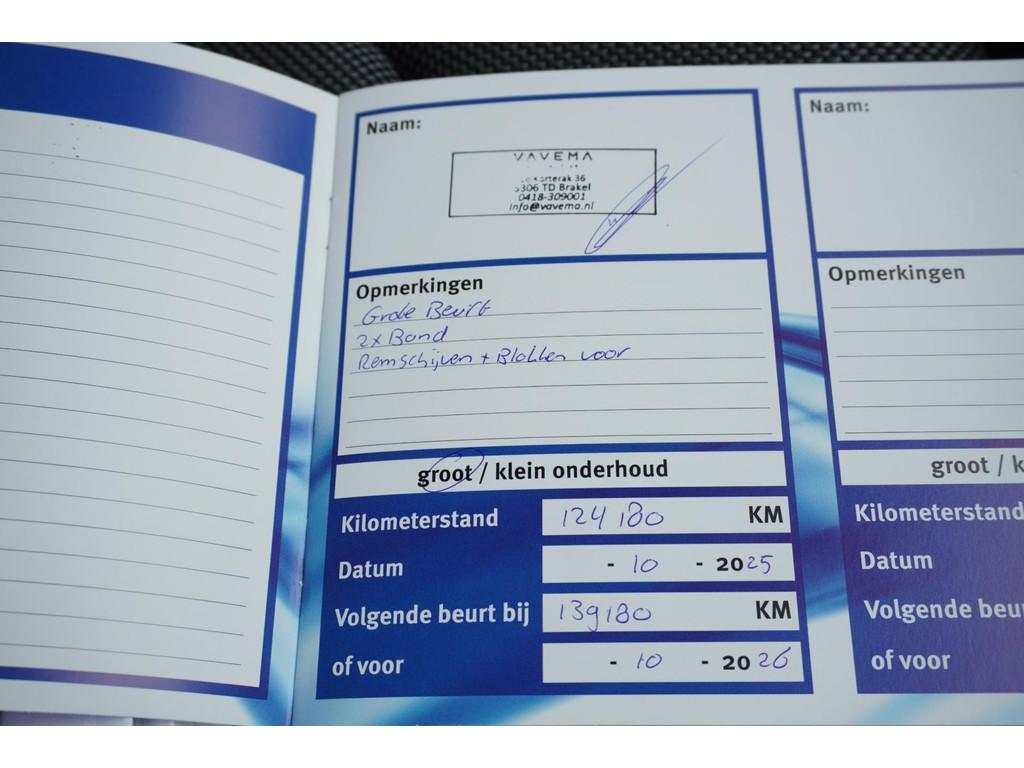 Naam:
VAVEMA
36
5306 TD Brakel
0418-309001
info@vavema.nl
Opmerkingen
Grote Beurt
2x Band
Remschijven + Blokken voor
groot / klein onderhoud
Kilometerstand 124180 KM
Datum - 10 - 2025
Volgende beurt bij 139180 KM
of voor - 10 - 2026
Naam:
Opmerkingen
groot / k
Kilometerstand
Datum
Volgende beu
of voor